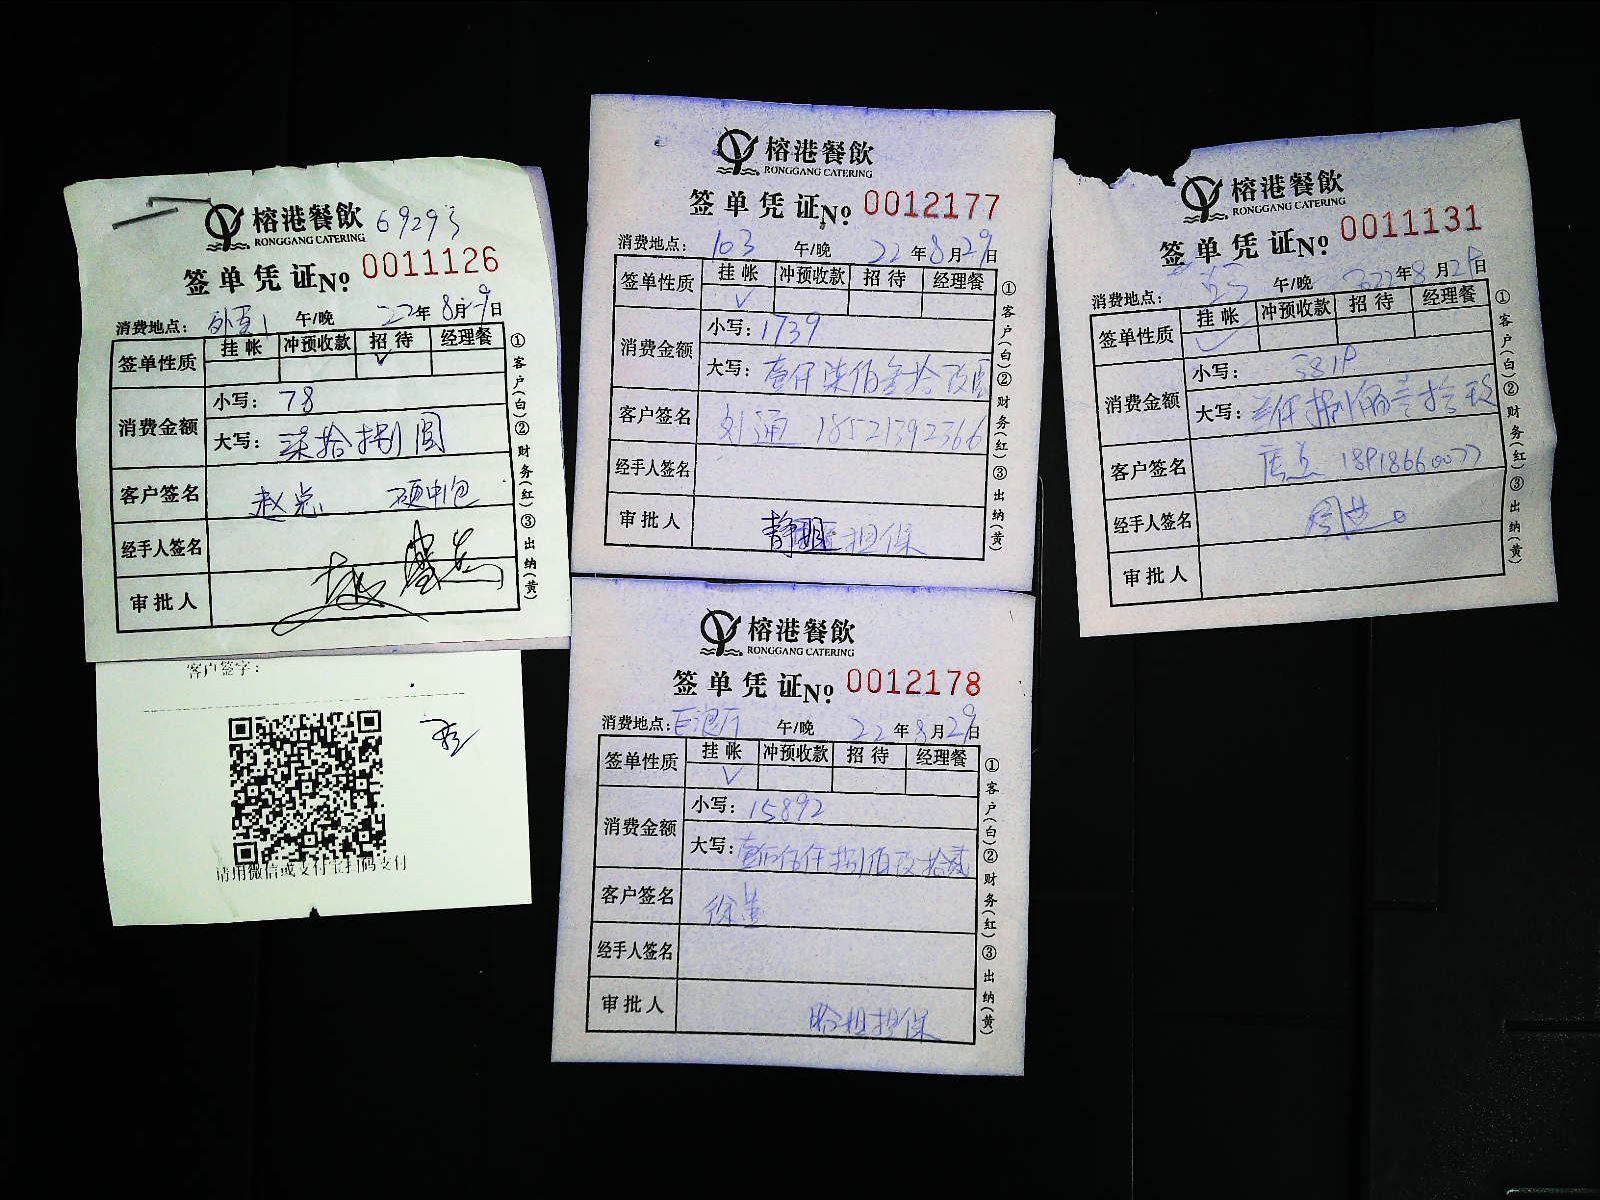 榕港餐飲 69293
RONGGANG CATERING
签单凭证No. 0011126
消费地点： 午/晚 22年8月29日
签单性质 挂帐 冲预收款 招待 经理餐
✓
消费金额 小写：78
大写：柒拾捌圆
客户签名 赵总 硬中包
经手人签名
审批人
①客户(白)②财务(红)③出纳(黄)
客户签字：
请用微信或支付宝扫码支付
榕港餐飲
RONGGANG CATERING
签单凭证No. 0012177
消费地点：103 午/晚 22年8月29日
签单性质 挂帐 冲预收款 招待 经理餐
✓
消费金额 小写：1739
大写：壹仟柒佰叁拾玖圆
客户签名 刘通 18521392366
经手人签名
审批人 担保
①客户(白)②财务(红)③出纳(黄)
榕港餐飲
RONGGANG CATERING
签单凭证No. 0012178
消费地点： 午/晚 22年8月29日
签单性质 挂帐 冲预收款 招待 经理餐
✓
消费金额 小写：15892
大写：壹万伍仟捌佰玖拾贰
客户签名 徐
经手人签名
审批人 担保
①客户(白)②财务(红)③出纳(黄)
榕港餐飲
RONGGANG CATERING
签单凭证No. 0011131
消费地点： 午/晚 2022年8月29日
签单性质 挂帐 冲预收款 招待 经理餐
✓
消费金额 小写：3819
大写：叁仟捌佰壹拾玖
客户签名 18918660077
经手人签名
审批人
①客户(白)②财务(红)③出纳(黄)